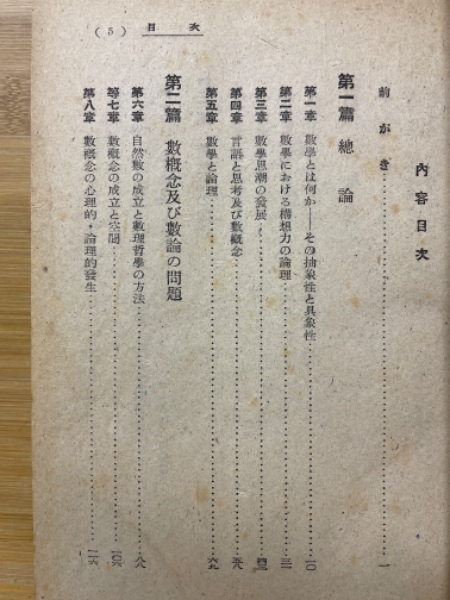 (5) 目次
內容目次
前がき……一
第一篇 總論
第一章 數學とは何か——その抽象性と具象性……一〇
第二章 數學における構想力の論理……三一
第三章 數學思潮の發展……四三
第四章 言語と思考及び數概念……五八
第五章 數學と論理……六九
第二篇 數概念及び數論の問題
第六章 自然數の成立と數理哲學の方法……八八
第七章 數概念の成立と空間……一〇六
第八章 數概念の心理的・論理的發生……一一六